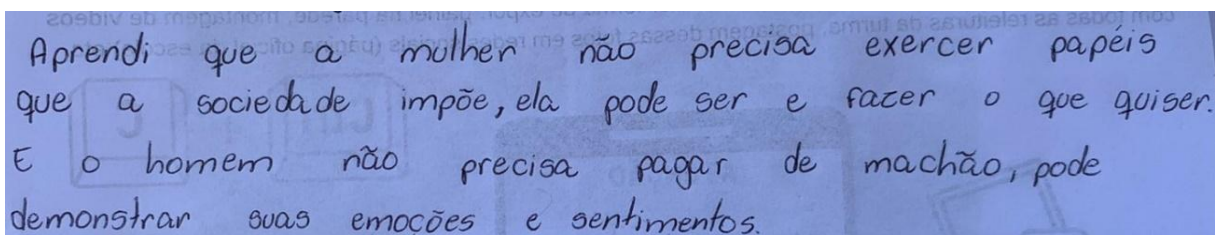 Aprendi que a mulher não precisa exercer papéis
que a sociedade impõe, ela pode ser e fazer o que quiser.
E o homem não precisa pagar de machão, pode
demonstrar suas emoções e sentimentos.